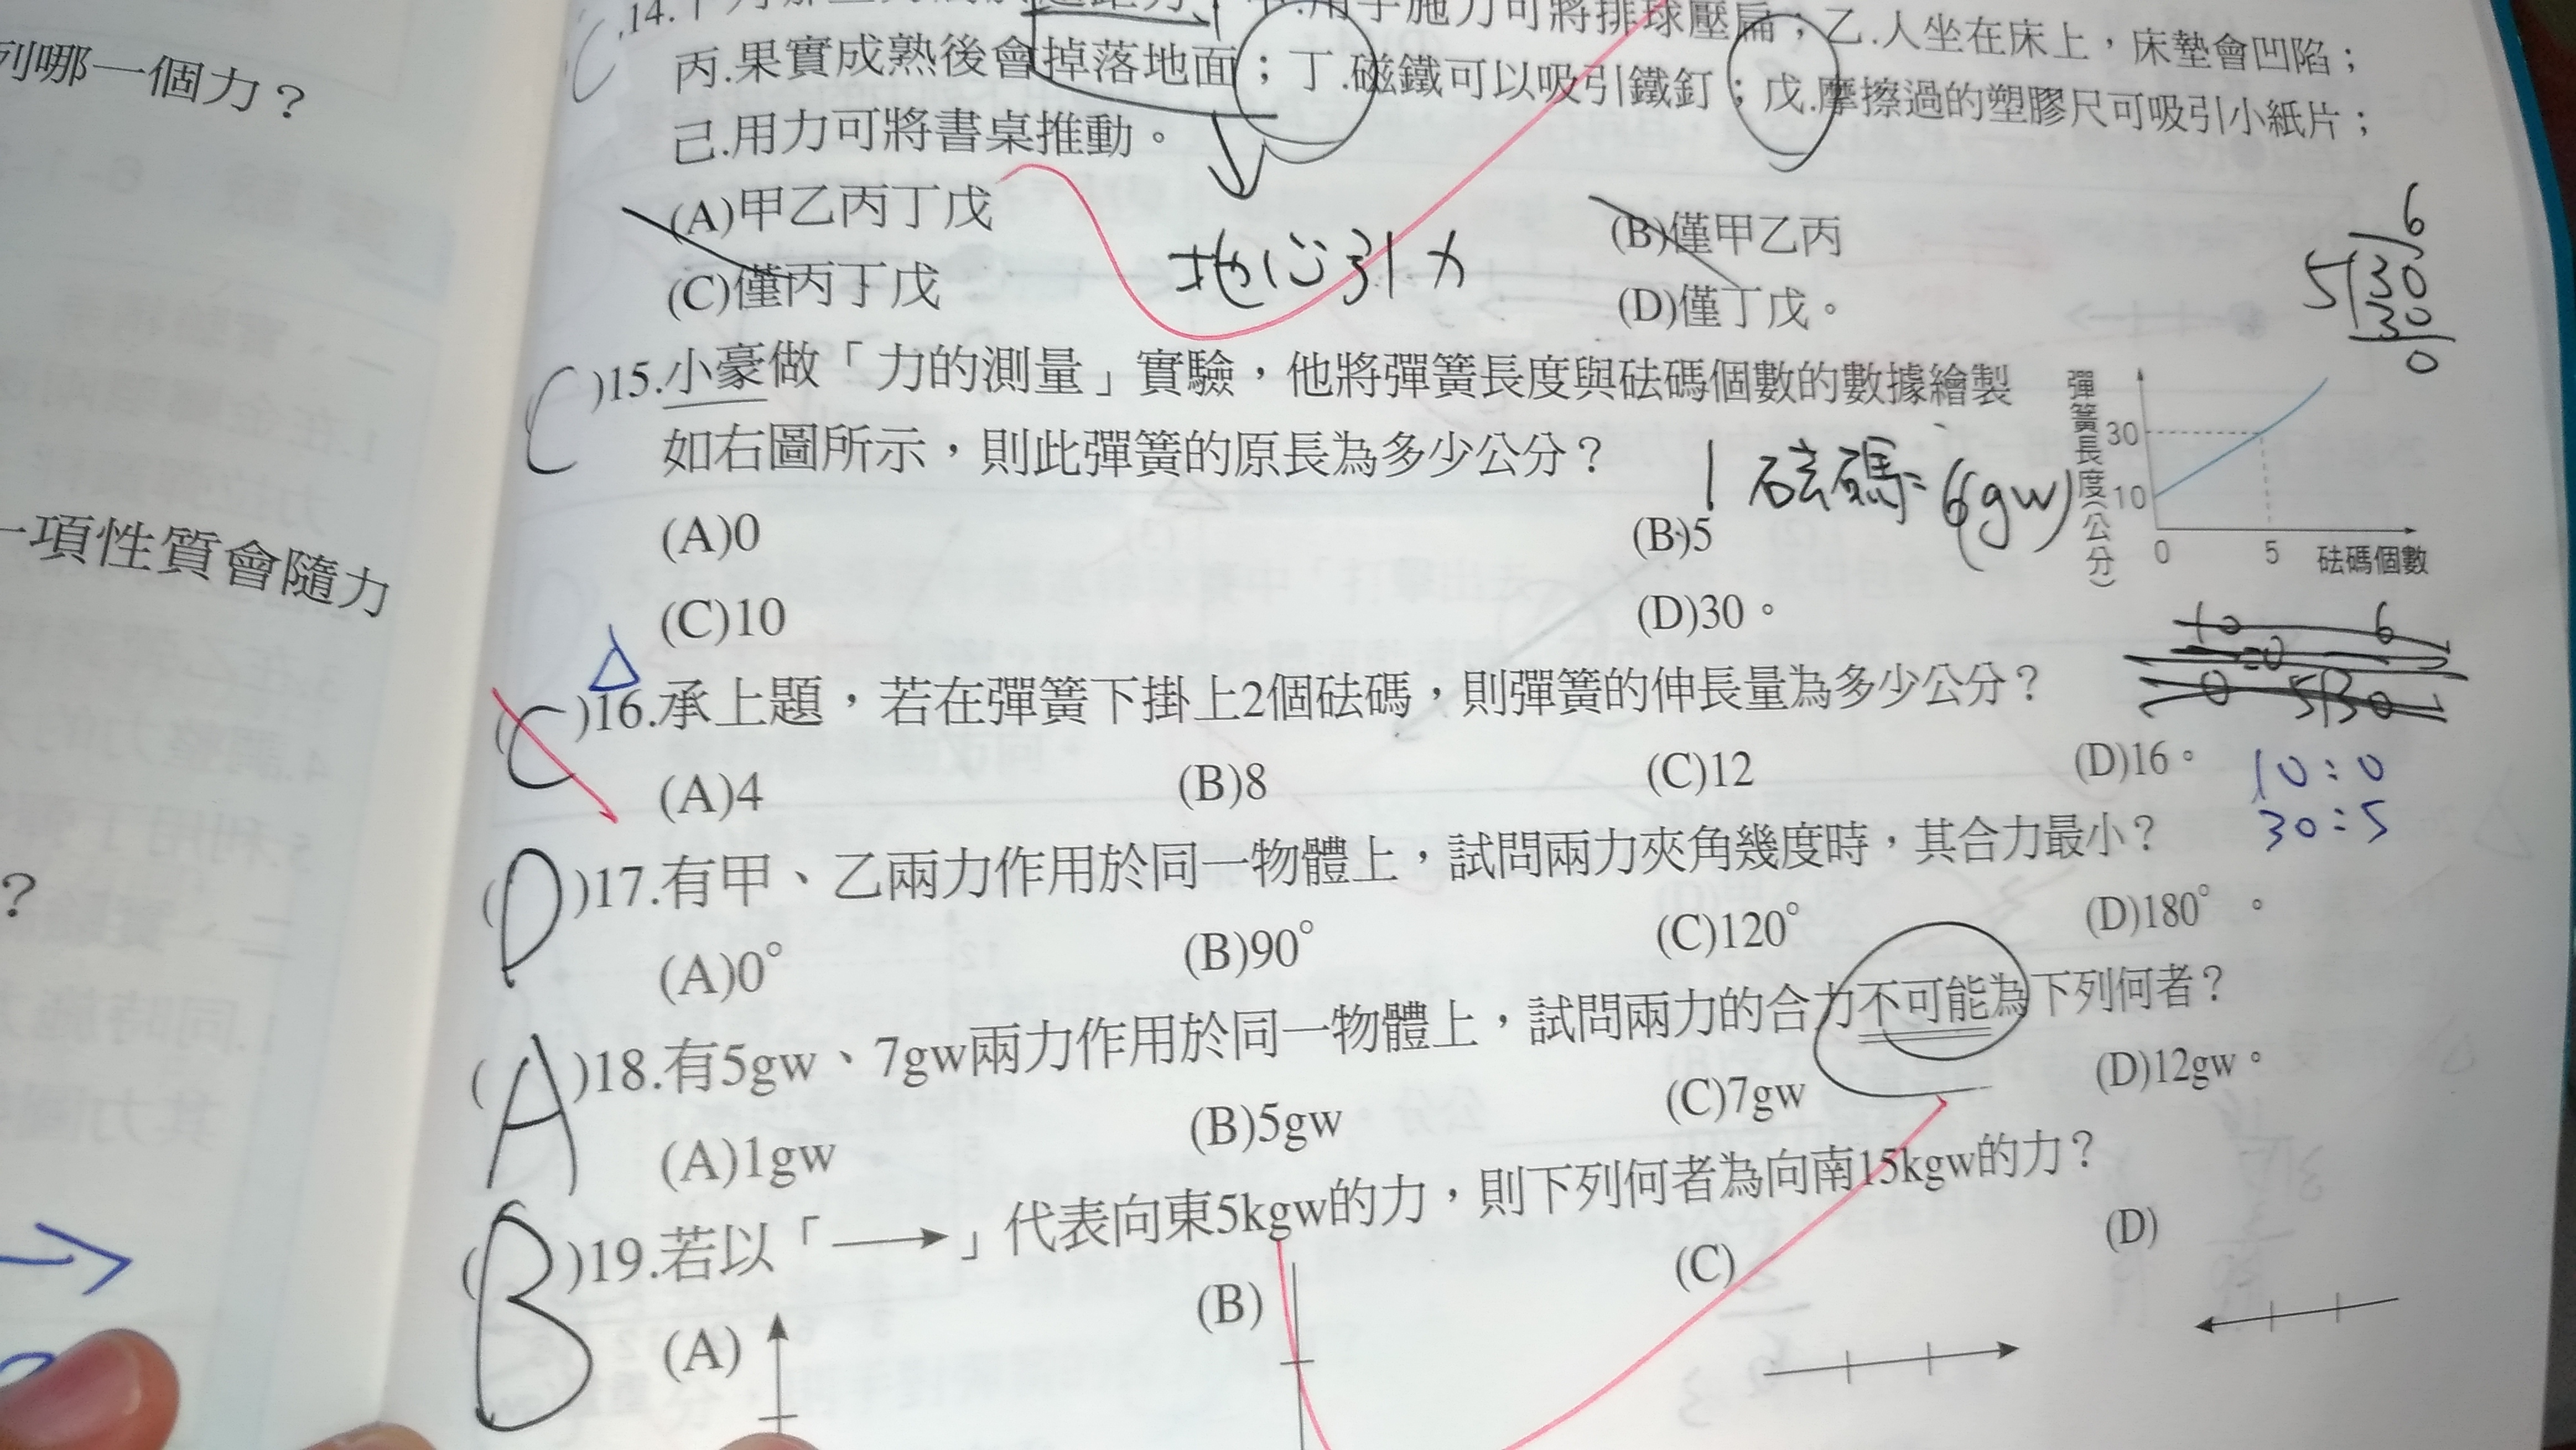 列哪一個力？
一項性質會隨力
？
丙.果實成熟後會掉落地面；丁.磁鐵可以吸引鐵釘；戊.摩擦過的塑膠尺可吸引小紙片；
14.
用手施力可將排球壓扁；乙.人坐在床上，床墊會凹陷；
己.用力可將書桌推動。
(A)甲乙丙丁戊
(B)僅甲乙丙
(C)僅丙丁戊
地心引力
(D)僅丁戊。
6
5 30
30
0
C )15.小豪做「力的測量」實驗，他將彈簧長度與砝碼個數的數據繪製
如右圖所示，則此彈簧的原長為多少公分？
1砝碼=6(gw)
彈簧長度(公分)
30
10
0
5
砝碼個數
(A)0
(B)5
(C)10
(D)30。
(C)16.承上題，若在彈簧下掛上2個砝碼，則彈簧的伸長量為多少公分？
(A)4
(B)8
(C)12
(D)16。
10:0
30:5
(D)17.有甲、乙兩力作用於同一物體上，試問兩力夾角幾度時，其合力最小？
(A)0°
(B)90°
(C)120°
(D)180°。
(A)18.有5gw、7gw兩力作用於同一物體上，試問兩力的合力不可能為下列何者？
(A)1gw
(B)5gw
(C)7gw
(D)12gw。
(B)19.若以「→」代表向東5kgw的力，則下列何者為向南15kgw的力？
(A)
(B)
(C)
(D)